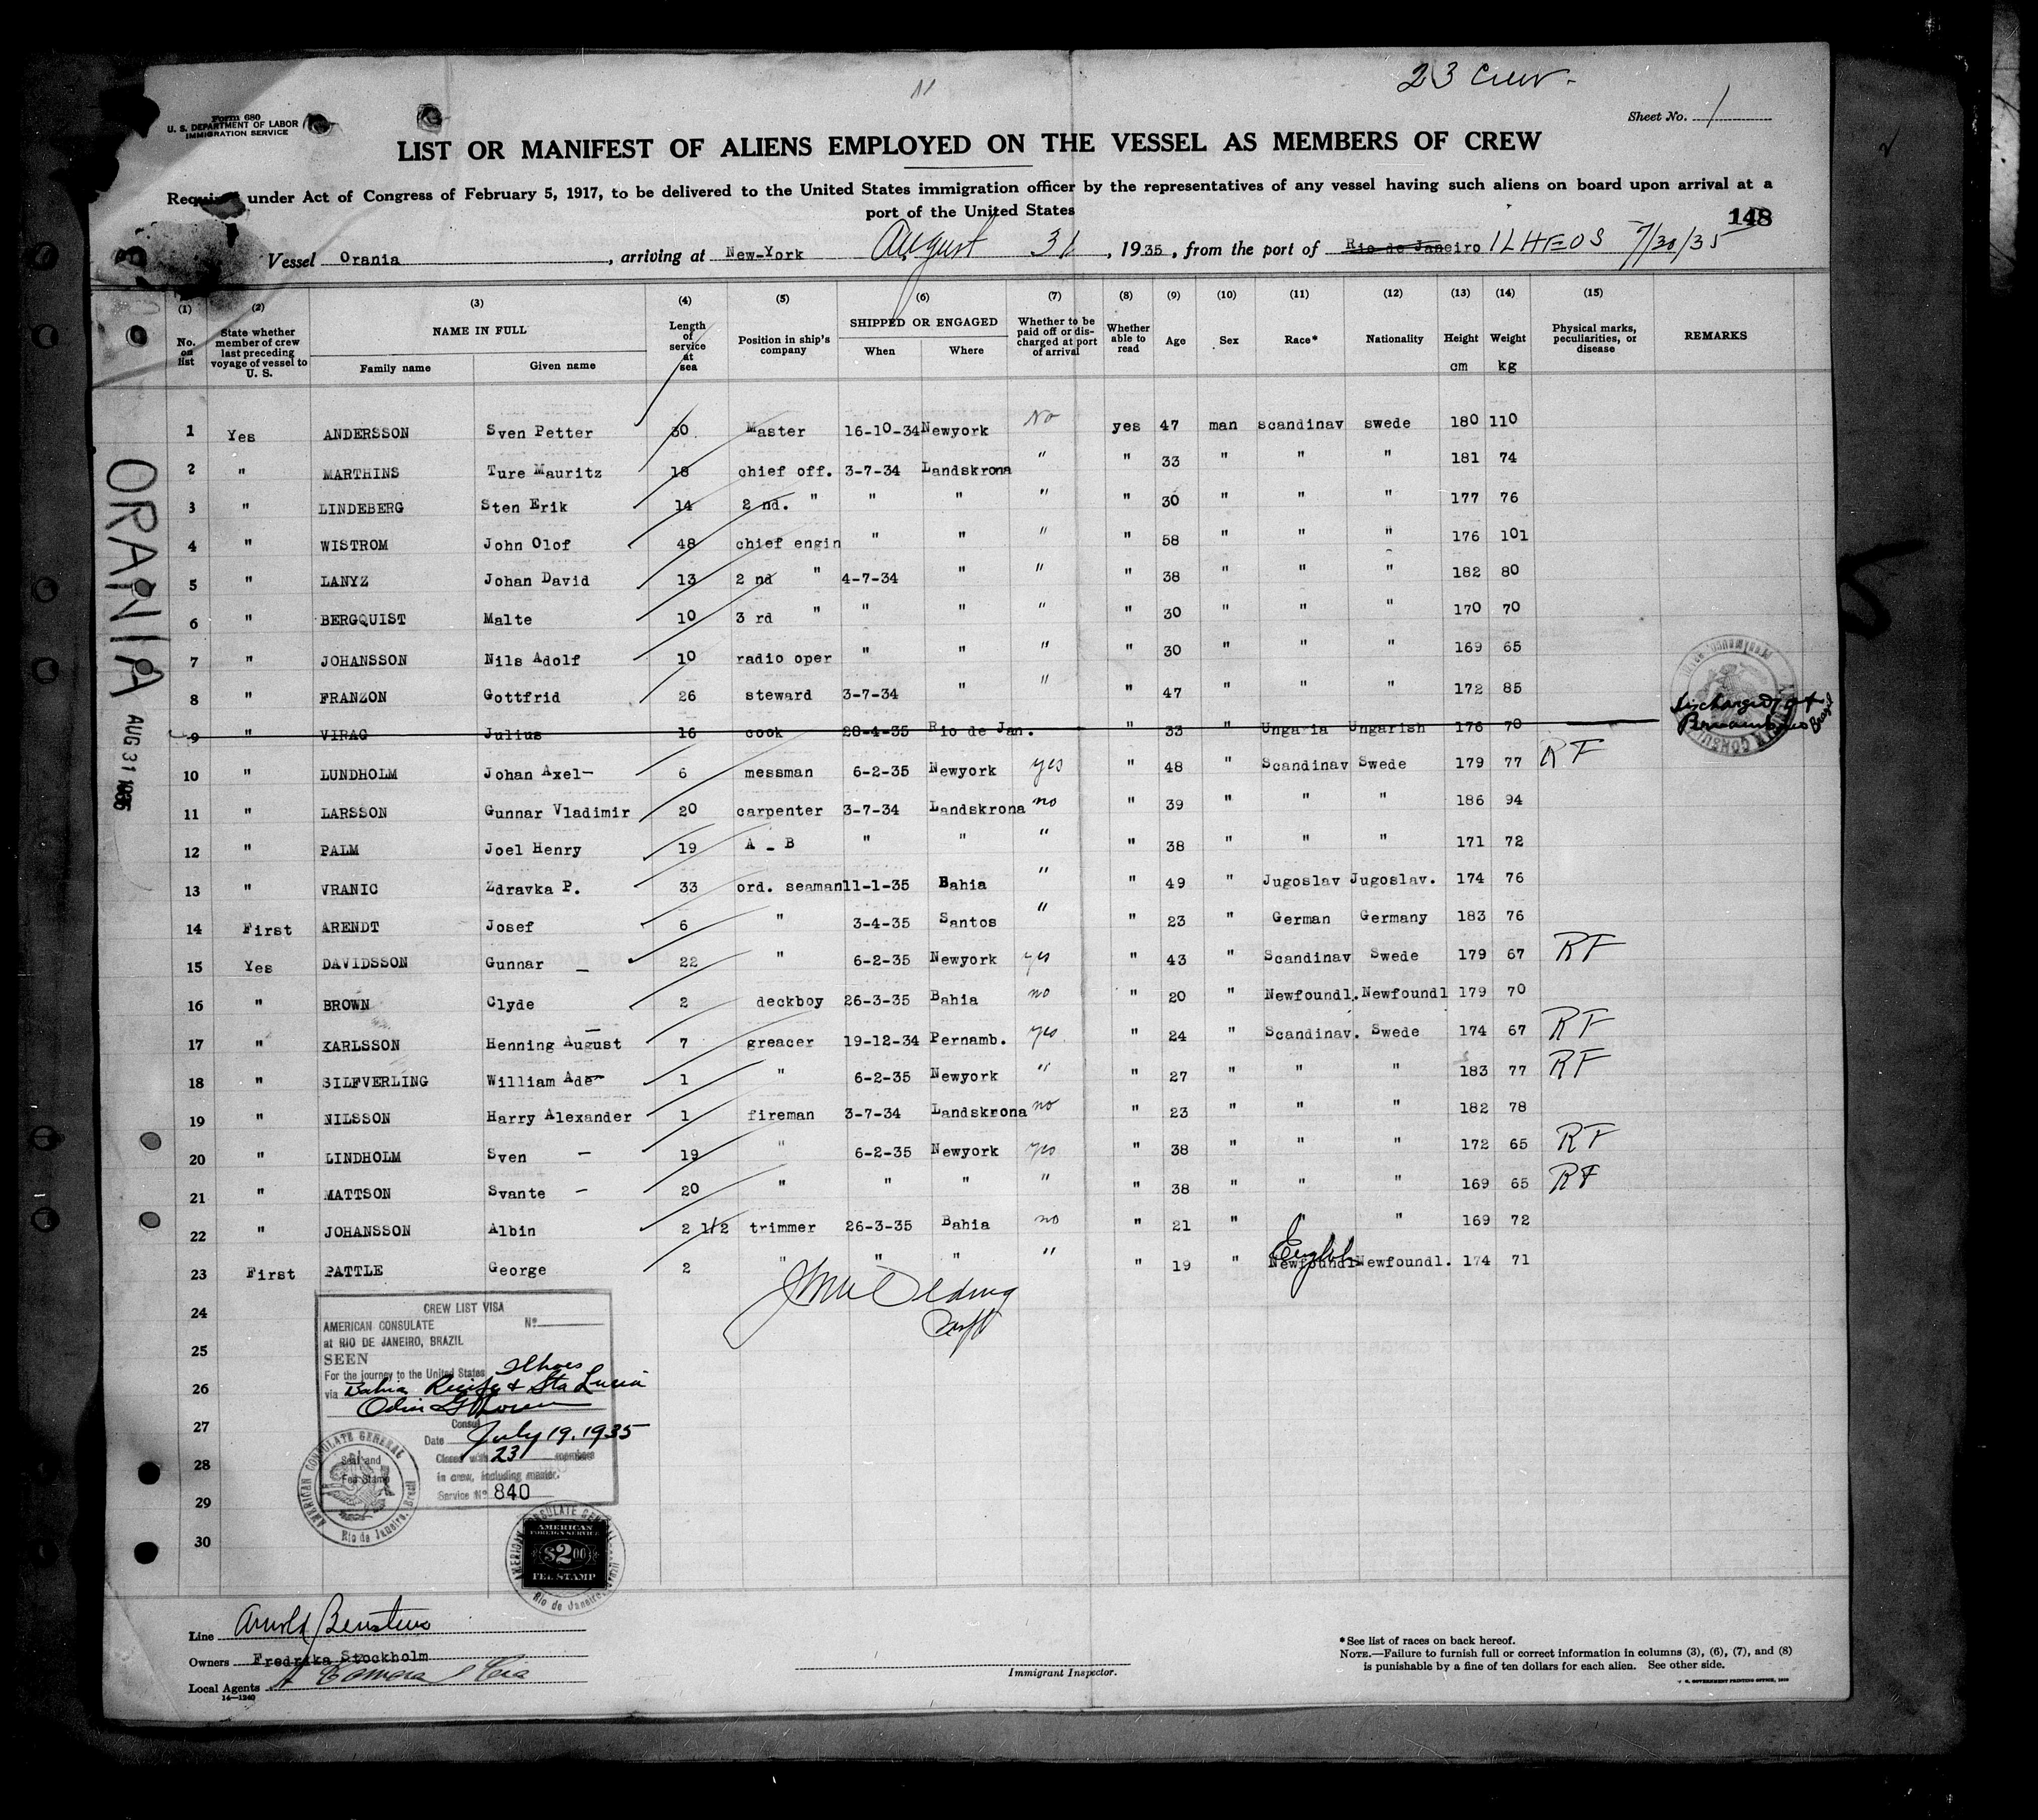 23 Crew.
Form 680
U. S. DEPARTMENT OF LABOR
IMMIGRATION SERVICE
Sheet No. 1
LIST OR MANIFEST OF ALIENS EMPLOYED ON THE VESSEL AS MEMBERS OF CREW
under Act of Congress of February 5, 1917, to be delivered to the United States immigration officer by the representatives of any vessel having such aliens on board upon arrival at a
port of the United States
148
Vessel Orania, arriving at New-York August 31, 1935, from the port of Rio de Janeiro ILHEOS 7/30/35
(1) (2) (3) (4) (5) (6) (7) (8) (9) (10) (11) (12) (13) (14) (15)
No. on list State whether member of crew last preceding voyage of vessel to U. S. NAME IN FULL Family name Given name Length of service at sea Position in ship's company SHIPPED OR ENGAGED When Where Whether to be paid off or discharged at port of arrival Whether able to read Age Sex Race* Nationality Height cm Weight kg Physical marks, peculiarities, or disease REMARKS
1 Yes ANDERSSON Sven Petter 30 Master 16-10-34 Newyork No yes 47 man scandinav swede 180 110
2 " MARTHINS Ture Mauritz 18 chief off. 3-7-34 Landskrona " " 33 " " " 181 74
3 " LINDEBERG Sten Erik 14 2 nd. " " " " " 30 " " " 177 76
4 " WISTROM John Olof 48 chief engin " " " " 58 " " " 176 101
5 " LANYZ Johan David 13 2 nd " 4-7-34 " " " 38 " " " 182 80
6 " BERGQUIST Malte 10 3 rd " " " " " 30 " " " 170 70
7 " JOHANSSON Nils Adolf 10 radio oper " " " " 30 " " " 169 65
8 " FRANZON Gottfrid 26 steward 3-7-34 " " " 47 " " " 172 85
9 " VIRAG Julius 16 cook 28-4-35 Rio de Jan. " 33 " Ungaria Ungarish 176 70 discharged at Pernambuco Brazil
10 " LUNDHOLM Johan Axel- 6 messman 6-2-35 Newyork yes " 48 " Scandinav Swede 179 77 RF
11 " LARSSON Gunnar Vladimir 20 carpenter 3-7-34 Landskrona no " 39 " " " 186 94
12 " PALM Joel Henry 19 A - B " " " " 38 " " " 171 72
13 " VRANIC Zdravka P. 33 ord. seaman 11-1-35 Bahia " " 49 " Jugoslav Jugoslav. 174 76
14 First ARENDT Josef 6 " 3-4-35 Santos " " 23 " German Germany 183 76
15 Yes DAVIDSSON Gunnar - 22 " 6-2-35 Newyork yes " 43 " Scandinav Swede 179 67 RF
16 " BROWN Clyde 2 deckboy 26-3-35 Bahia no " 20 " Newfoundl. Newfoundl 179 70
17 " KARLSSON Henning August 7 greacer 19-12-34 Pernamb. yes " 24 " Scandinav. Swede 174 67 RF
18 " SILFVERLING William Ade- 1 " 6-2-35 Newyork " " 27 " " " 183 77 RF
19 " NILSSON Harry Alexander 1 fireman 3-7-34 Landskrona no " 23 " " " 182 78
20 " LINDHOLM Sven - 19 " 6-2-35 Newyork yes " 38 " " " 172 65 RF
21 " MATTSON Svante - 20 " " " " " 38 " " " 169 65 RF
22 " JOHANSSON Albin 2 1/2 trimmer 26-3-35 Bahia no " 21 " " " 169 72
23 First PATTLE George 2 " " " " " 19 " Newfoundl English Newfoundl. 174 71
24
25
26
27
28
29
30
ORANIA
AUG 31 1935
CREW LIST VISA
AMERICAN CONSULATE No
at RIO DE JANEIRO, BRAZIL
SEEN
For the journey to the United States Ilheos
via Bahia Recife & Sta Lucia
Consul
Date July 19, 1935
Closed with 23 members
in crew, including master.
Service No 840
Seal and
Fee Stamp
AMERICAN CONSULATE GENERAL
Rio de Janeiro, Brazil
AMERICAN
FOREIGN SERVICE
$2.00
FEE STAMP
AMERICAN CONSULATE GENERAL
Rio de Janeiro,
Line Arnold Bernstein
Owners Fredrika Stockholm
Local Agents
14—1240
Immigrant Inspector.
*See list of races on back hereof.
NOTE.—Failure to furnish full or correct information in columns (3), (6), (7), and (8)
is punishable by a fine of ten dollars for each alien. See other side.